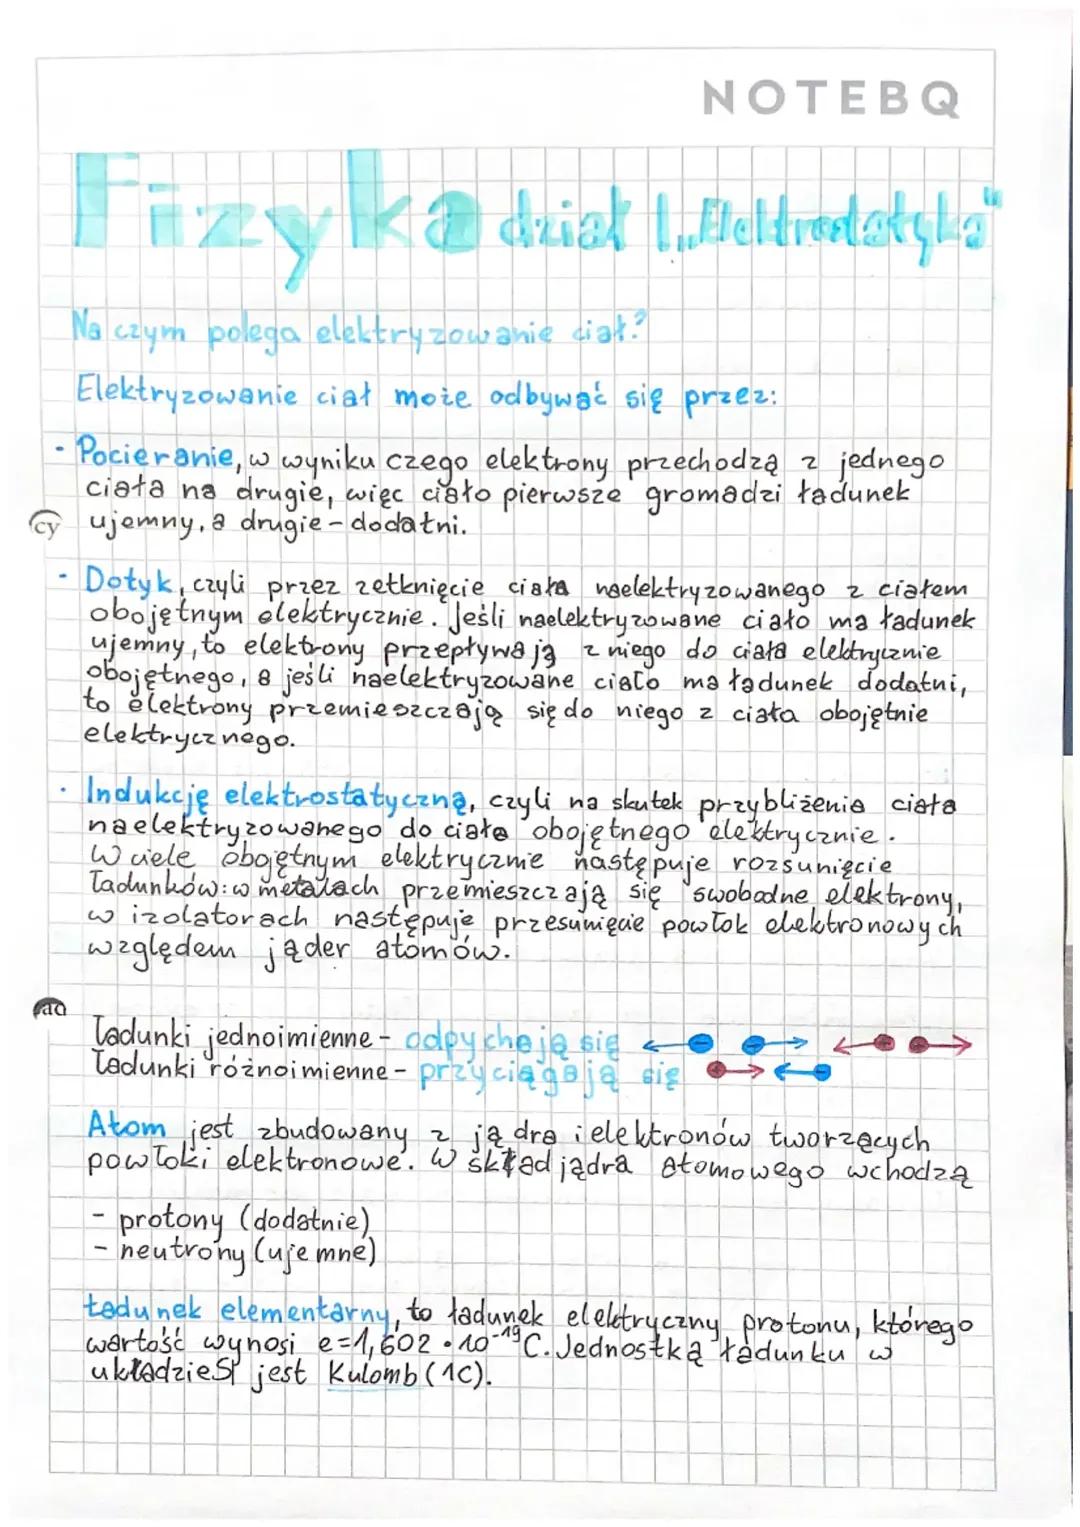 NOTEBQ
Fizyka dział 1 „Elektrostatyka"
Na czym polega elektryzowanie ciał?
Elektryzowanie ciał może odbywać się przez:
- Pocieranie, w wyniku czego elektrony przechodzą z jednego
ciała na drugie, więc ciało pierwsze gromadzi ładunek
cy ujemny, a drugie - dodatni.
- Dotyk, czyli przez zetknięcie ciała naelektryzowanego z ciałem
obojętnym elektrycznie. Jeśli naelektryzowane ciało ma ładunek
ujemny, to elektrony przepływają z niego do ciała elektrycznie
obojętnego, a jeśli naelektryzowane ciało ma ładunek dodatni,
to elektrony przemieszczają się do niego z ciała obojętnie
elektrycznego.
· Indukcję elektrostatyczną, czyli na skutek przybliżenia ciała
naelektryzowanego do ciała obojętnego elektrycznie.
W ciele obojętnym elektrycznie następuje rozsunięcie
ładunków: w metalach przemieszczają się swobodne elektrony,
w izolatorach następuje przesunięcie powłok elektronowych
względem jąder atomów.
Ładunki jednoimienne - odpychają się
Ładunki różnoimienne - przyciągają się
Atom jest zbudowany z jądra i elektronów tworzących
powłoki elektronowe. W skład jądra atomowego wchodzą
- protony (dodatnie)
- neutrony (ujemne)
Ładunek elementarny, to ładunek elektryczny protonu, którego
wartość wynosi e=1,602 · 10⁻¹⁹ C. Jednostką ładunku w
układzie SI jest Kulomb (1C).